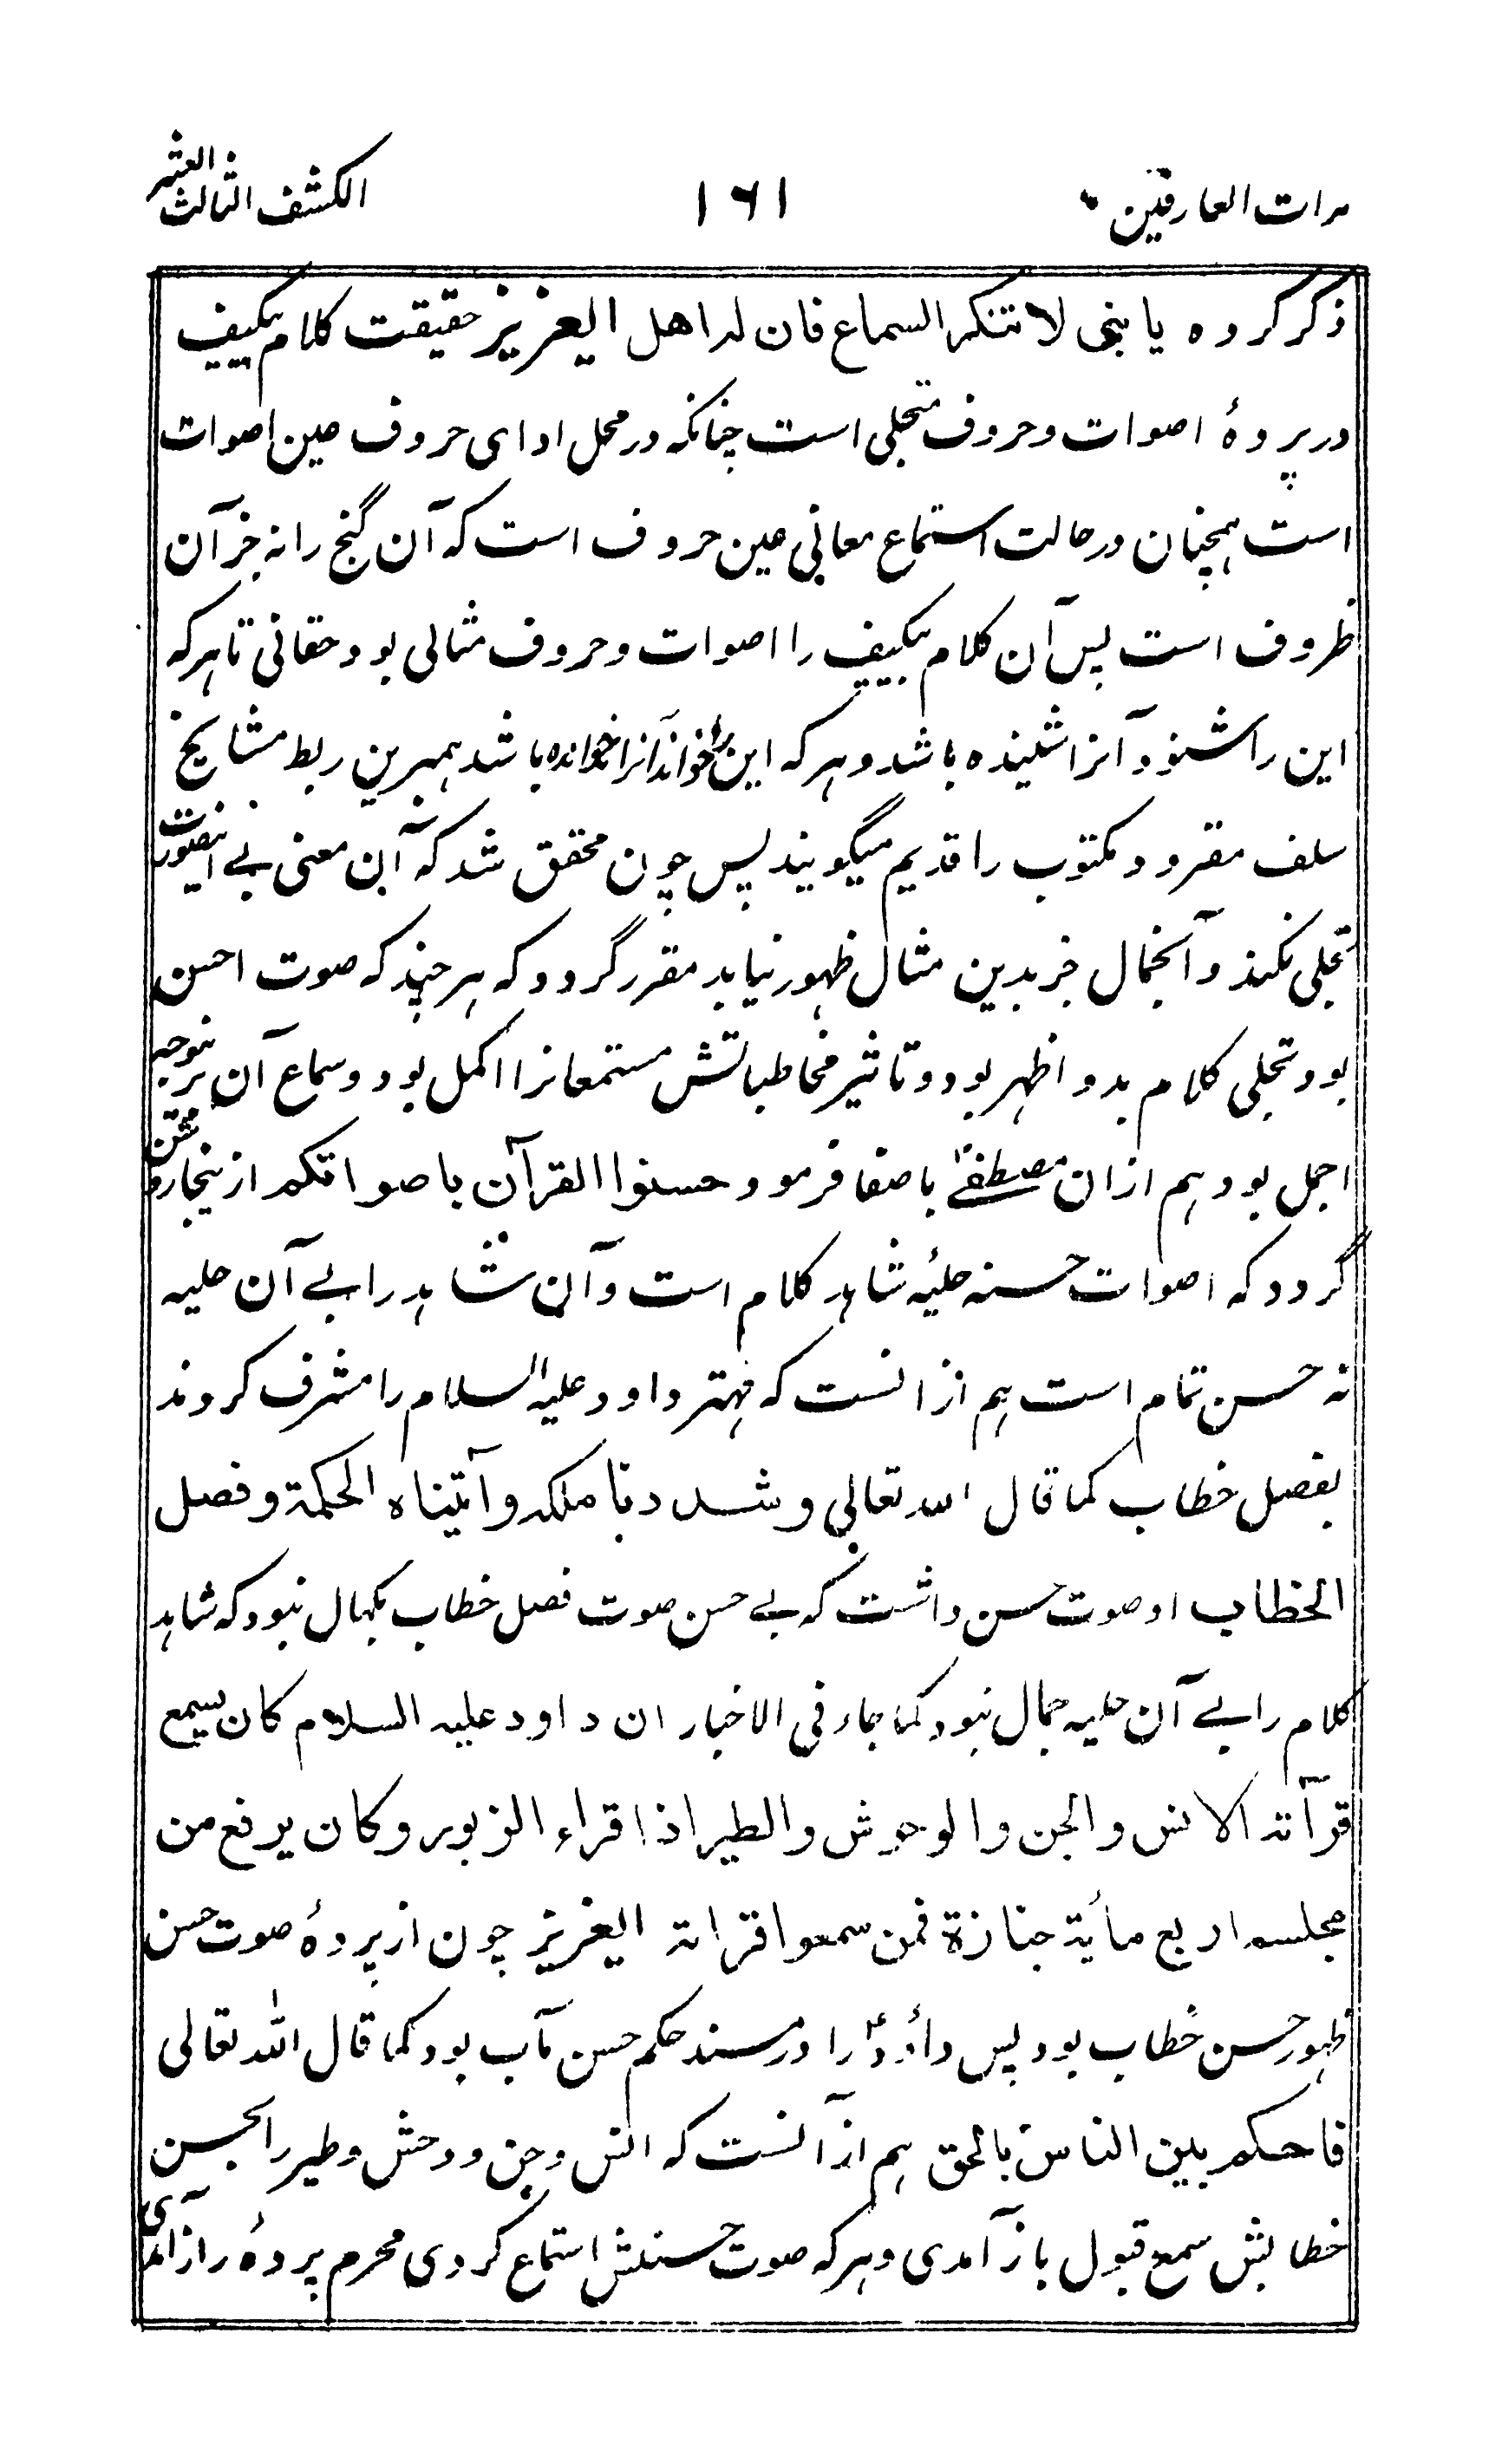 مرات العارفین ۱۶۱ الکشف الثالث العشر
ذکر کرده یا بنی لا تنکر السماع فان له اهل ایعزیز حقیقت کلام بیکیف
در پردۀ اصوات و حروف متجلی است چنانکه در محل ادای حروف عین اصوات
است همچنان در حالت استماع معانی عین حروف است که آن گنج را نه جز آن
ظروف است پس آن کلام بیکیف را اصوات و حروف مثالی بود حقانی تا هر که
این را شنود آنرا شنیده باشد و هر که این را خواند آنرا خوانده باشد همبرین ربط مشایخ
سلف مقرو و مکتوب را قدیم میگویند پس چون محقق شد که آن معنی بے اینصورت
تجلی نکند و آنجمال جز بدین مثال ظهور نیابد مقرر گردد که هر چند که صوت احسن
بود تجلی کلام بدو اظهر بود و تاثیر مخاطباتش مستمعانرا اکمل بود و سماع آن بر نوجه
اجمل بود هم ازان مصطفےٰ با صفا فرمود حسنوا القرآن باصواتکم از ینجا روشن
گردد که اصوات حسنه حلیۀ شاهد کلام است و آن شاهد را بے آن حلیه
نه حسن تمام است هم از انست که مهتر داود علیه السلام را مشرف کردند
بفصل خطاب کما قال الله تعالی و شددنا ملکه و آتیناه الحکمة و فصل
الخطاب او صوت حسن داشت که بے حسن صوت فصل خطاب بکمال نبود که شاهد
کلام را بے آن حلیه جمال نبود کما جاء فی الاخبار ان داود علیه السلام کان یسمع
قرآته الانس والجن والوحوش والطیر اذا قراء الزبور و کان یرفع من
مجلسه اربع مأیة جنازة فمن سمعوا قراته ایعزیز چون از پردۀ صوت حسن
ظهور حسن خطاب بود پس داؤدؑ را در مسند حکم حسن مآب بود کما قال الله تعالی
فاحکم بین الناس بالحق هم از آنست که انس و جن و وحش و طیر را بحسن
خطابش سمع قبول باز آمدی و هر که صوت حسنش استماع کردی محرم پردۀ راز آمدی